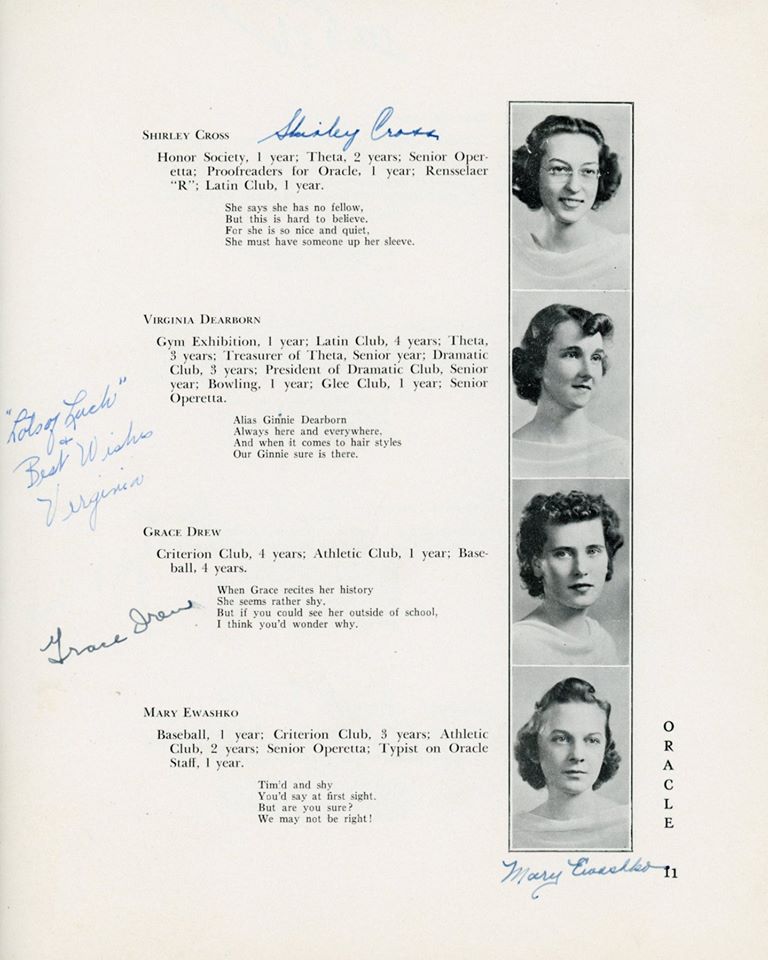 SHIRLEY CROSS Shirley Cross
Honor Society, 1 year; Theta, 2 years; Senior Oper-
etta; Proofreaders for Oracle, 1 year; Rensselaer
"R"; Latin Club, 1 year.
She says she has no fellow,
But this is hard to believe.
For she is so nice and quiet,
She must have someone up her sleeve.
VIRGINIA DEARBORN
Gym Exhibition, 1 year; Latin Club, 4 years; Theta,
3 years; Treasurer of Theta, Senior year; Dramatic
Club, 3 years; President of Dramatic Club, Senior
year; Bowling, 1 year; Glee Club, 1 year; Senior
Operetta.
Alias Ginnie Dearborn
Always here and everywhere,
And when it comes to hair styles
Our Ginnie sure is there.
"Lots of Luck"
+
Best Wishes
Virginia
GRACE DREW
Criterion Club, 4 years; Athletic Club, 1 year; Base-
ball, 4 years.
When Grace recites her history
She seems rather shy,
But if you could see her outside of school,
I think you'd wonder why.
Grace Drew
MARY EWASHKO
Baseball, 1 year; Criterion Club, 3 years; Athletic
Club, 2 years; Senior Operetta; Typist on Oracle
Staff, 1 year.
Timid and shy
You'd say at first sight.
But are you sure?
We may not be right!
ORACLE
Mary Ewashko
11